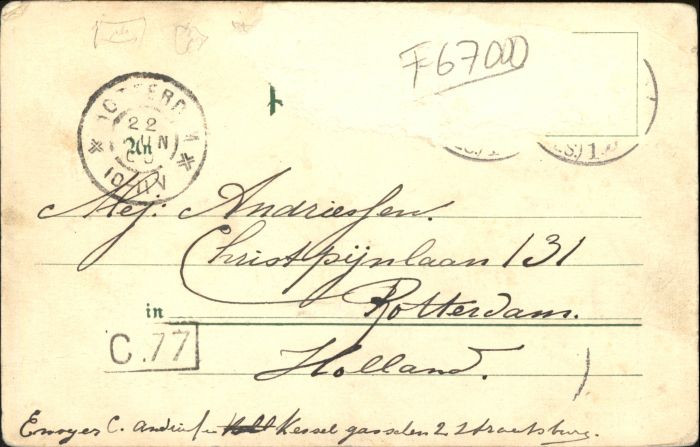 F67000
ROTTERDAM
22
JUN
An
10-11V
S.) 1.
Mej: Andriessen.
Christpijnlaan 131
in Rotterdam.
C.77
Holland.
Envoyer C. Andriessen Kessel gasselen 2 Straatsburg.